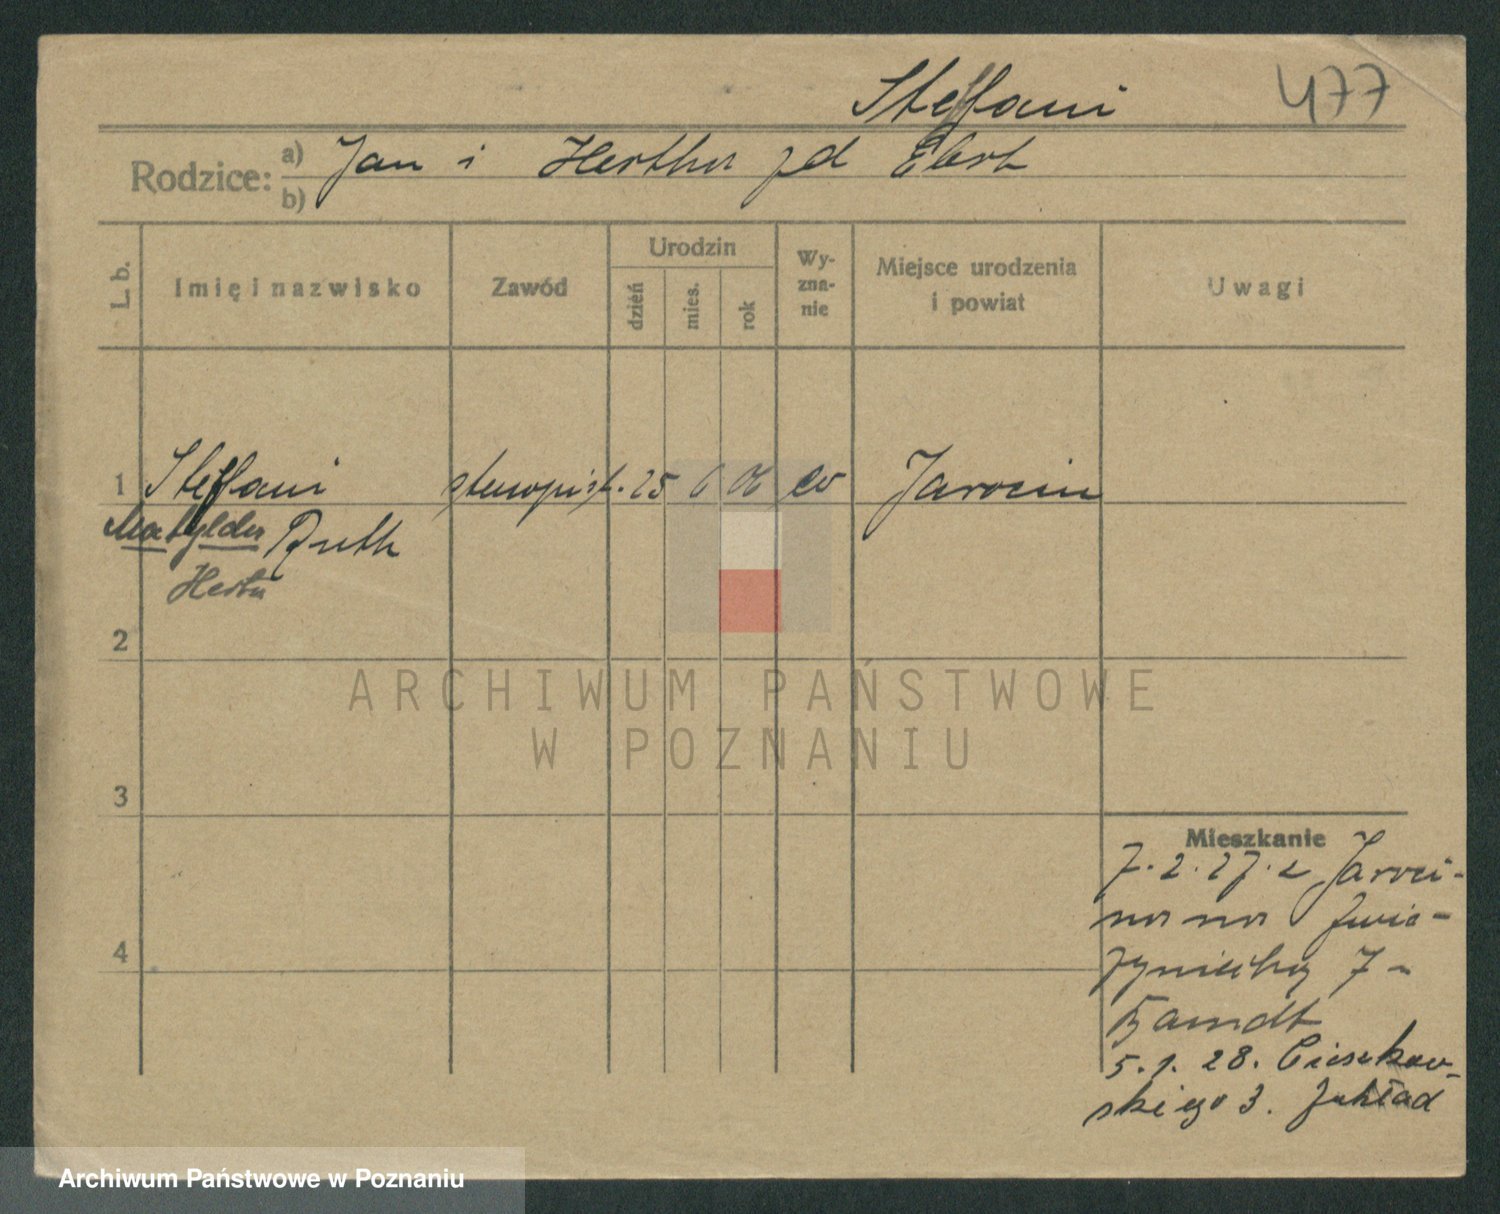 Steffani 477
Rodzice: a) Jan i Hertha zd Ebert
b)
L. b. Imię i nazwisko Zawód Urodzin dzień mies. rok Wyznanie Miejsce urodzenia i powiat Uwagi
1 Steffani stenopist. 25 6 06 ew Jarocin
Matylda Ruth
Herta
2
ARCHIWUM PAŃSTWOWE
W POZNANIU
3
Mieszkanie
7.2.27. z Jaroci-
na na Zwie-
rzyniecką 7
4
5.1.28. Cieszkow-
skiego 3. Zakład
Archiwum Państwowe w Poznaniu